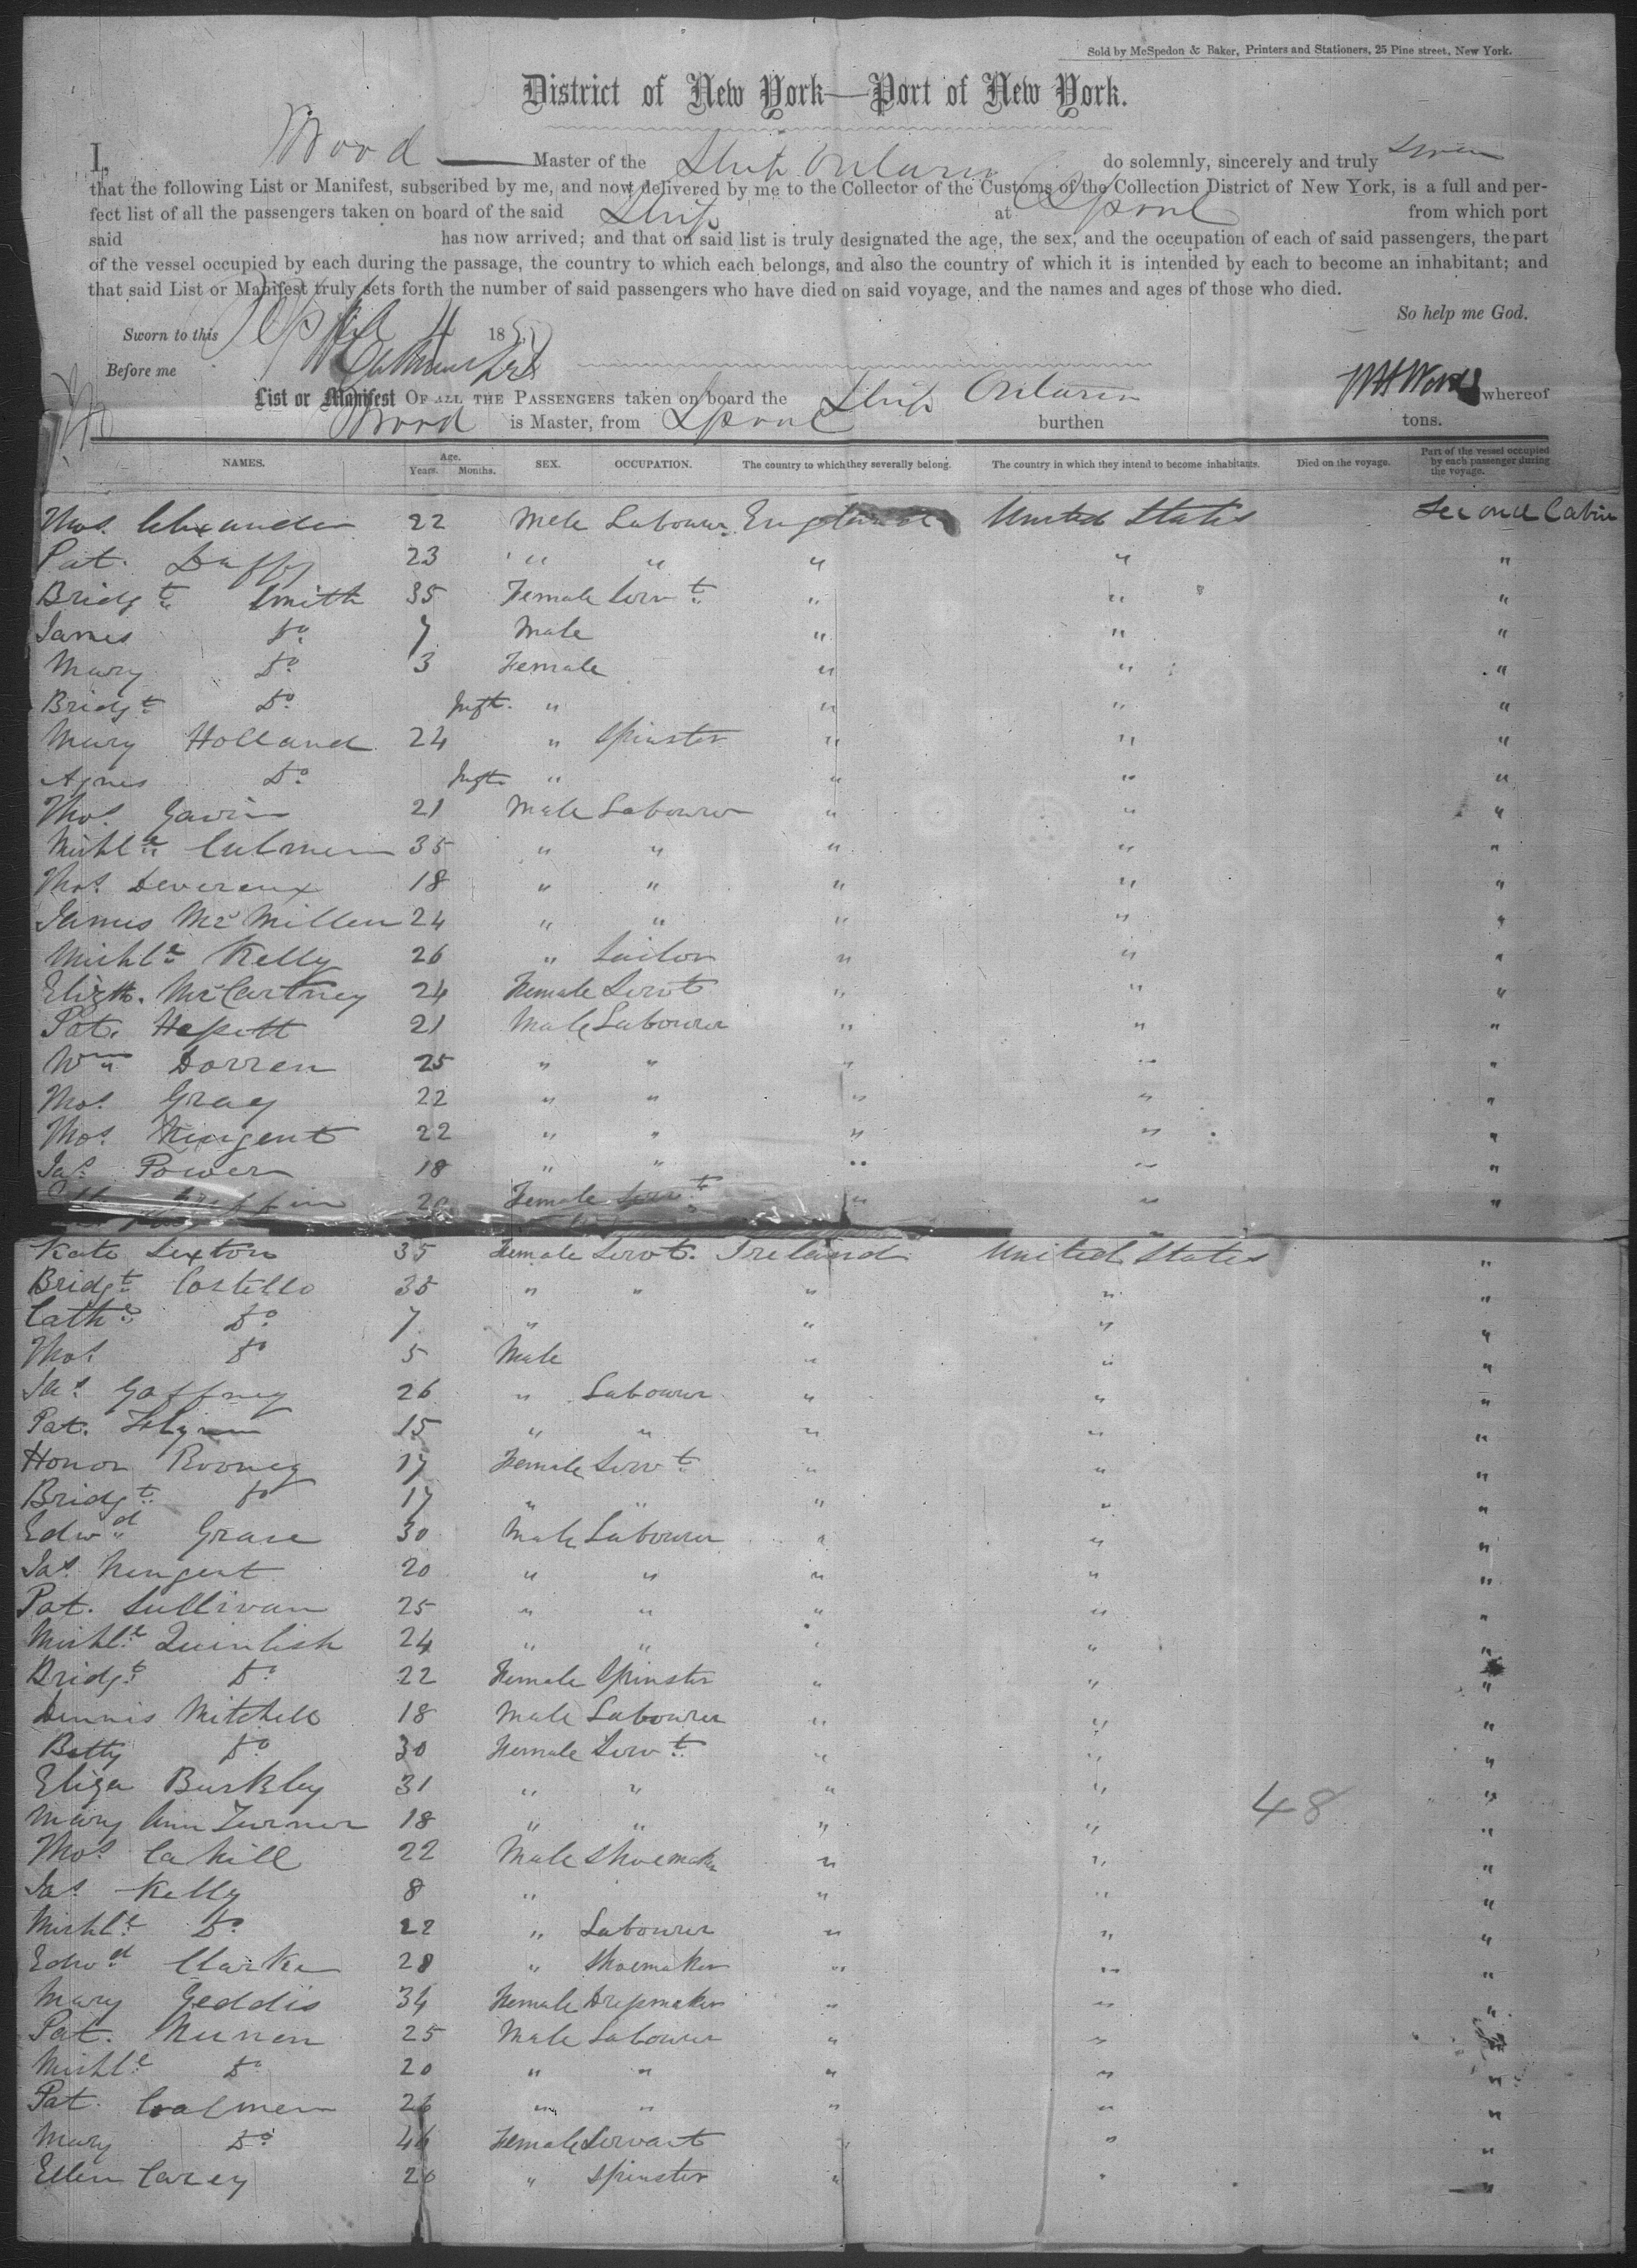 Sold by McSpedon & Baker, Printers and Stationers, 25 Pine street, New York.
District of New York—Port of New York.
I, Wood Master of the Ship Ontario do solemnly, sincerely and truly swear
that the following List or Manifest, subscribed by me, and now delivered by me to the Collector of the Customs of the Collection District of New York, is a full and per-
fect list of all the passengers taken on board of the said Ship at Lpool from which port
said has now arrived; and that on said list is truly designated the age, the sex, and the occupation of each of said passengers, the part
of the vessel occupied by each during the passage, the country to which each belongs, and also the country of which it is intended by each to become an inhabitant; and
that said List or Manifest truly sets forth the number of said passengers who have died on said voyage, and the names and ages of those who died.
So help me God.
Sworn to this 4 185
Before me
List or Manifest OF ALL THE PASSENGERS taken on board the Ship Ontario whereof
Wood is Master, from Lpool burthen tons.
NAMES. Age. Years. Months. SEX. OCCUPATION. The country to which they severally belong. The country in which they intend to become inhabitants. Died on the voyage. Part of the vessel occupied by each passenger during the voyage.
Thos. Alexander 22 Male Labourer England United States Second Cabin
Pat. Duffy 23 " " " " "
Bridgt. Smith 35 Female Servt. " " "
James Do. 7 Male " " "
Mary Do. 3 Female " " "
Bridgt. Do. Inft. " " " "
Mary Holland 24 " Spinster " " "
Agnes Do. Inft. " " " "
Thos. Gavin 21 Male Labourer " " "
Michl. Culmen 35 " " " " "
Thos. Devereux 18 " " " " "
James McMillen 24 " " " " "
Michl. Kelly 26 " Sailor " " "
Elizth. McCartney 24 Female Servt " " "
Pat. 21 Male Labourer " " "
Wm. Dorren 25 " " " " "
Thos. Gray 22 " " " " "
Thos. Nugent 22 " " " " "
Jas. Power 18 " " " " "
Female Servt. " " "
Kate Sexton 35 Female Servt. Ireland United States "
Bridgt. Costello 35 " " " " "
Cathe. Do. 7 " " " "
Thos. Do 5 Male " " "
Jas. Gaffney 26 " Labourer " " "
Pat. Flynn 15 " " " " "
Honor Rooney 17 Female Servt. " " "
Bridgt. Do 17 " " " " "
Edwd. Grace 30 Male Labourer " " "
Jas. Nugent 20 " " " " "
Pat. Sullivan 25 " " " " "
Michl. Quinlish 24 " " " " "
Bridgt. Do. 22 Female Spinster " " "
Dennis Mitchell 18 Male Labourer " " "
Betty Do. 30 Female Servt. " " "
Eliza Burkley 31 " " " " "
48
Mary Ann Turner 18 " " " " "
Thos. Cahill 22 Male Shoemaker " " "
Jas. Kelly 8 " " " "
Michl. Do. 22 " Labourer " " "
Edwd. Clarke 28 " Shoemaker " " "
Mary Geddis 34 Female Dressmaker " " "
Pat. Nunen 25 Male Labourer " " "
Michl. Do. 20 " " " " "
Pat. Coalmen 26 " " " " "
Mary Do. 46 Female Servant " " "
Ellen Carey 20 " Spinster " " "